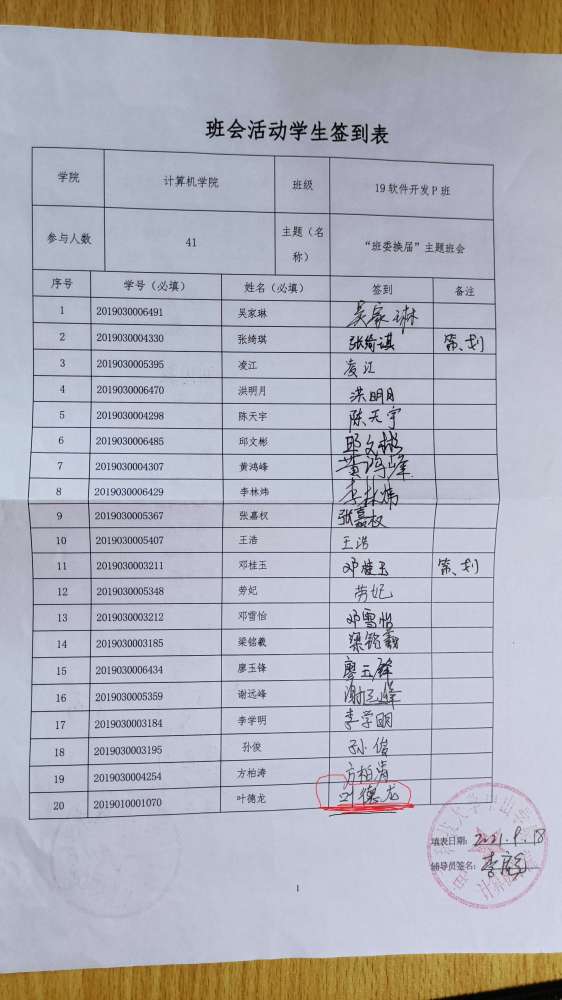 班会活动学生签到表
学院 计算机学院 班级 19软件开发P班
参与人数 41 主题（名称） “班委换届”主题班会
序号 学号（必填） 姓名（必填） 签到 备注
1 2019030006491 吴家琳 吴家琳
2 2019030004330 张绮琪 张绮琪 策划
3 2019030005395 凌江 凌江
4 2019030006470 洪明月 洪明月
5 2019030004298 陈天宇 陈天宇
6 2019030006485 邱文彬 邱文彬
7 2019030004307 黄鸿峰 黄鸿峰
8 2019030006429 李林炜 李林炜
9 2019030005367 张嘉权 张嘉权
10 2019030005407 王浩 王浩
11 2019030003211 邓桂玉 邓桂玉 策划
12 2019030005348 劳妃 劳妃
13 2019030003212 邓雪怡 邓雪怡
14 2019030003185 梁铭羲 梁铭羲
15 2019030006434 廖玉锋 廖玉锋
16 2019030005359 谢远峰 谢远峰
17 2019030003184 李学明 李学明
18 2019030003195 孙俊 孙俊
19 2019030004254 方柏涛 方柏涛
20 2019010001070 叶德龙 叶德龙
填表日期：2021.9.18
辅导员签名：
1